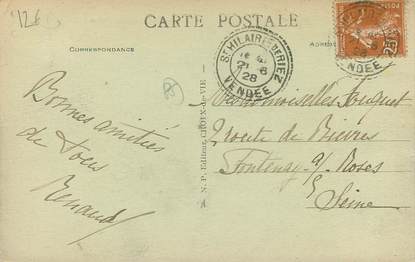 126
CARTE POSTALE
CORRESPONDANCE
ST HILAIRE DE RIEZ
21 - 8
28
VENDEE
VENDEE
25
A
N. P. Editeur, CROIX-de-VIE
Bonnes amitiés
de tous
Renaud
Mesdemoiselles Fouquet
2 route de Bièvres
Fontenay a/ Roses
Seine